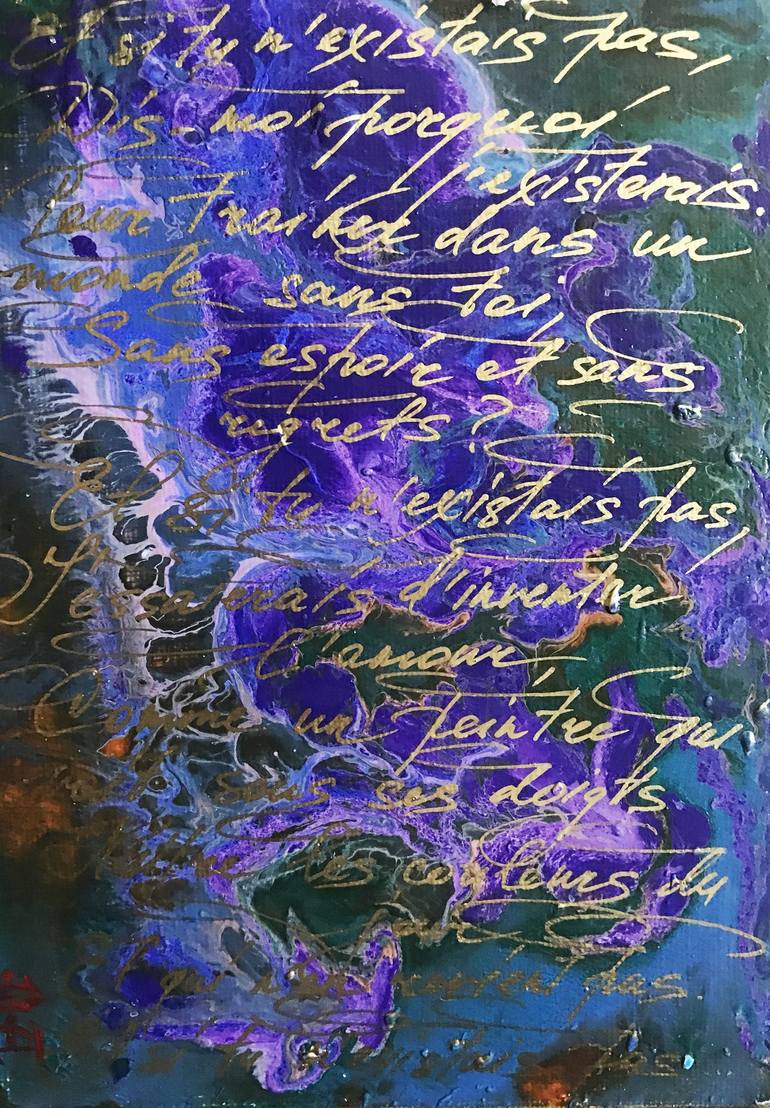 Et si tu n'existais pas,
Dis-moi porquoi
j'existerais.
Pour traîner dans un
monde sans toi,
Sans espoir et sans
regrets?
Et si tu n'existais pas,
J'essaierais d'inventer
l'amour,
Comme un peintre qui
voit sous ses doigts
Naître les couleurs du
jour
Et qui n'en revient pas.
Et si tu n'existais pas